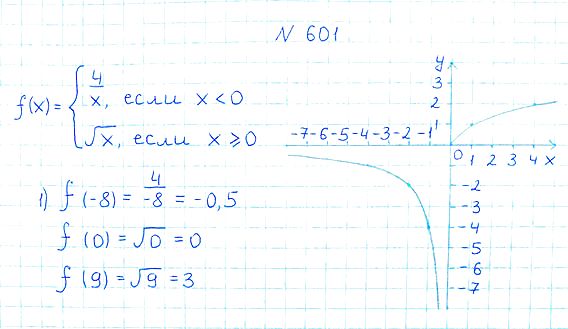 N 601
f(x) = { 4/x, если x < 0
√x, если x ⩾ 0
1) f(-8) = 4/-8 = -0,5
f(0) = √0 = 0
f(9) = √9 = 3
y
3
2
1
-7 -6 -5 -4 -3 -2 -1
0 1 2 3 4 x
-2
-3
-4
-5
-6
-7